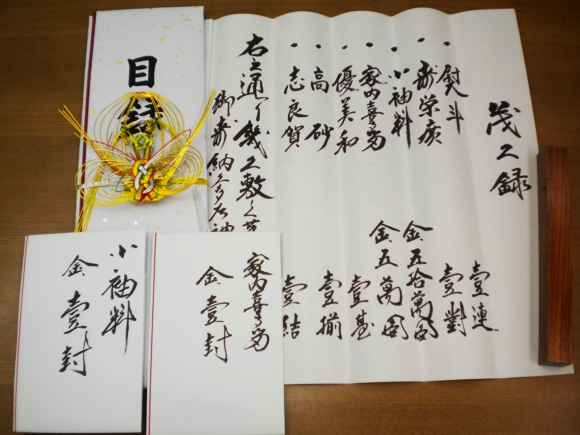 茂久録
熨斗 壹連
寿栄廣 壹對
小袖料 金五拾萬圓
家内喜多留 金五萬圓
優美和 壹基
高砂 壹揃
志良賀 壹結
右之通り幾久敷く
御寿納
目録
家内喜多留
金壹封
小袖料
金壹封